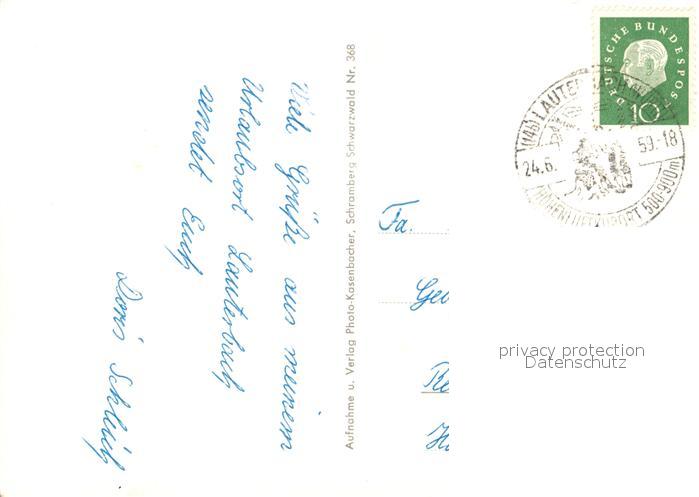 Viele Grüße aus meinem
Urlaubsort Lauterbach
sendet Euch
Doris
Aufnahme u. Verlag Photo-Kasenbacher, Schramberg Schwarzwald Nr. 368
DEUTSCHE BUNDESPOS
10
(14b) LAUTERBACH
24.6. 59.-18
HÖHENLUFTKURORT 500-900m
Fa.
Ge
Re
privacy protection
Datenschutz